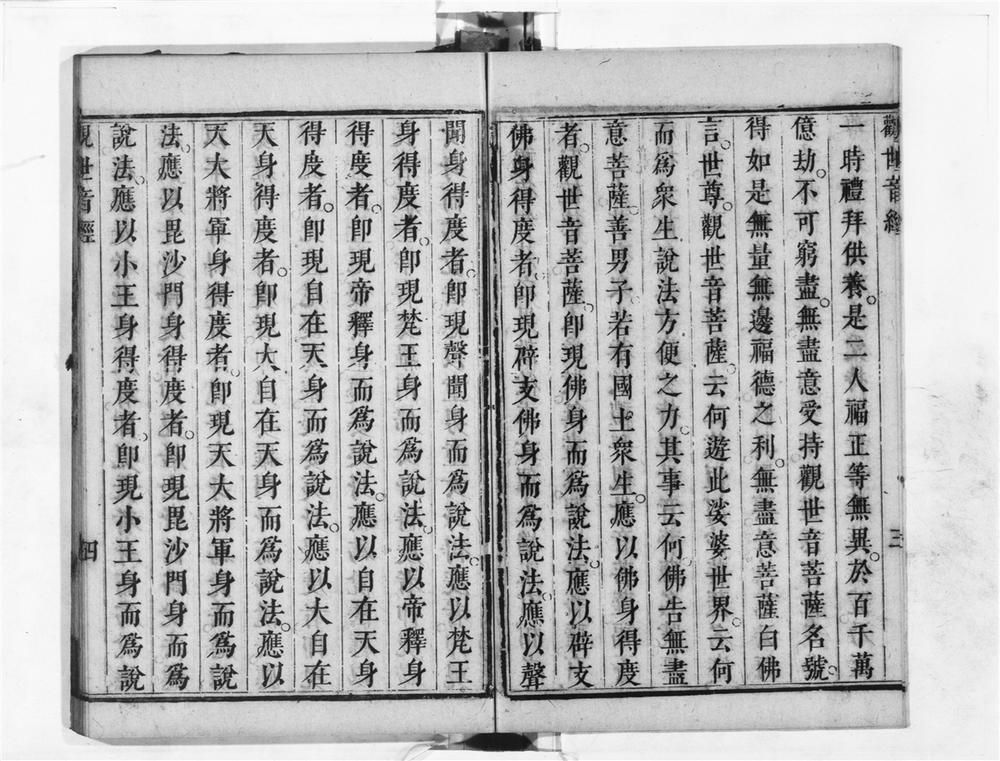 觀世音經 三
一時禮拜供養。是二人福正等無異。於百千萬
億劫。不可窮盡。無盡意受持觀世音菩薩名號。
得如是無量無邊福德之利。無盡意菩薩白佛
言。世尊。觀世音菩薩。云何遊此娑婆世界。云何
而爲衆生說法。方便之力。其事云何。佛告無盡
意菩薩。善男子。若有國土衆生。應以佛身得度
者。觀世音菩薩。卽現佛身而爲說法。應以辟支
佛身得度者。卽現辟支佛身而爲說法。應以聲
聞身得度者。卽現聲聞身而爲說法。應以梵王
身得度者。卽現梵王身而爲說法。應以帝釋身
得度者。卽現帝釋身而爲說法。應以自在天身
得度者。卽現自在天身而爲說法。應以大自在
天身得度者。卽現大自在天身而爲說法。應以
天大將軍身得度者。卽現天大將軍身而爲說
法。應以毘沙門身得度者。卽現毘沙門身而爲
說法。應以小王身得度者。卽現小王身而爲說
觀世音經 四